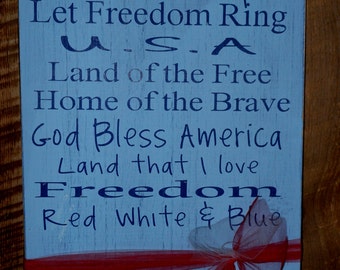 Let Freedom Ring
U.S.A
Land of the Free
Home of the Brave
God Bless America
Land that I love
Freedom
Red White & Blue